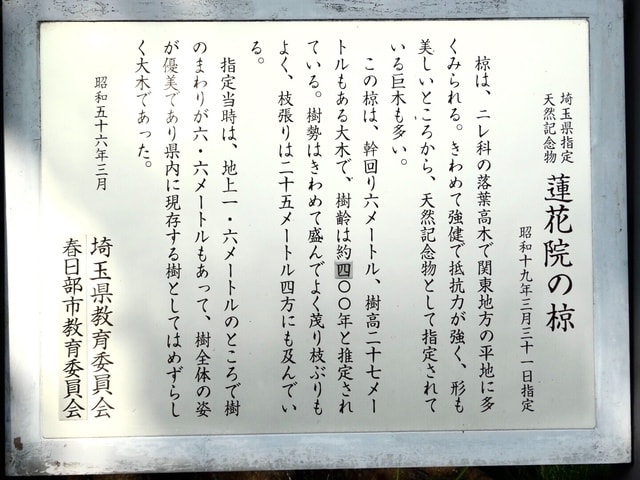 埼玉県指定
天然記念物
蓮花院の椋
昭和十九年三月三十一日指定
椋は、ニレ科の落葉高木で関東地方の平地に多
くみられる。きわめて強健で抵抗力が強く、形も
美しいところから、天然記念物として指定されて
いる巨木も多い。
この椋は、幹回り六メートル、樹高二十七メー
トルもある大木で、樹齢は約四〇〇年と推定され
ている。樹勢はきわめて盛んでよく茂り枝ぶりも
よく、枝張りは二十五メートル四方にも及んでい
る。
指定当時は、地上一・六メートルのところで樹
のまわりが六・六メートルもあって、樹全体の姿
が優美であり県内に現存する樹としてはめずらし
く大木であった。
昭和五十六年三月
埼玉県教育委員会
春日部市教育委員会